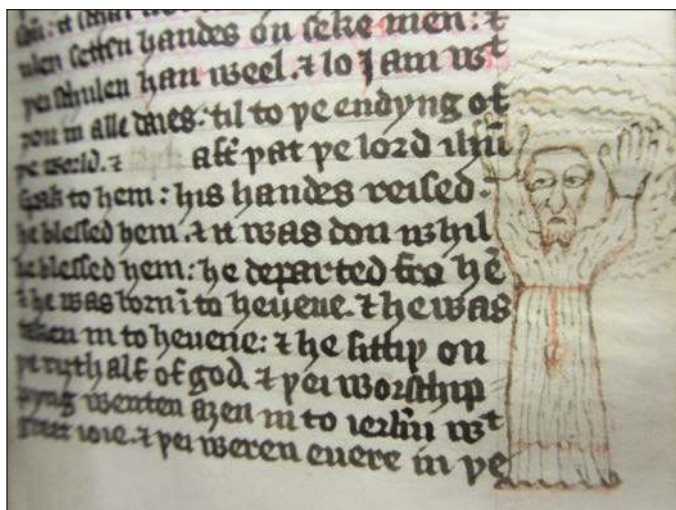 schulen setten handes on seke men: ⁊
þei schulen han weel. ⁊ lo I am wᵗ
ȝou in alle daies: til to þe endyng of
þe werld. ⁊ aft̄ þat þe lord ihū
spak to hem: his handes reised.
he blessed hem. ⁊ it was don whil
he blessed hem: he departed fro hē
⁊ he was born ī to heuene. ⁊ he was
taken in to heuene: ⁊ he sittiþ on
þe riȝthalf of god. ⁊ þei worschip
pyng wenten aȝen in to ierlm̄ wᵗ
greet ioie. ⁊ þei weren euere in þe